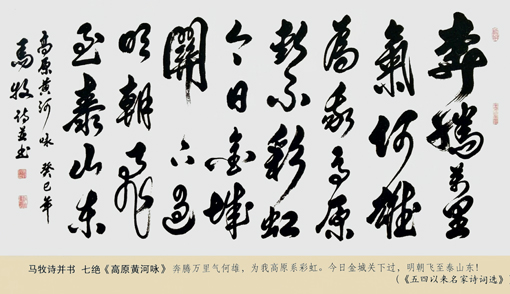 奔騰萬里
氣何雄
為我高原
繫彩虹
今日金城
關下過
明朝飛
至泰山東
高原黄河咏 癸巳年
馬牧诗并书
马牧诗并书 七绝《高原黄河咏》奔腾万里气何雄，为我高原系彩虹。今日金城关下过，明朝飞至泰山东！
（《五四以来名家诗词选》）